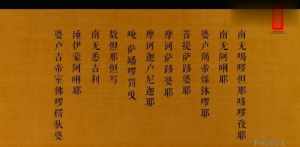 南无喝啰怛那哆啰夜耶
南无阿唎耶
婆卢羯帝烁钵啰耶
菩提萨埵婆耶
摩诃萨埵婆耶
摩诃迦卢尼迦耶
唵萨皤啰罚曳
数怛那怛写
南无悉吉利
埵伊蒙阿唎耶
婆卢吉帝室佛啰楞驮婆